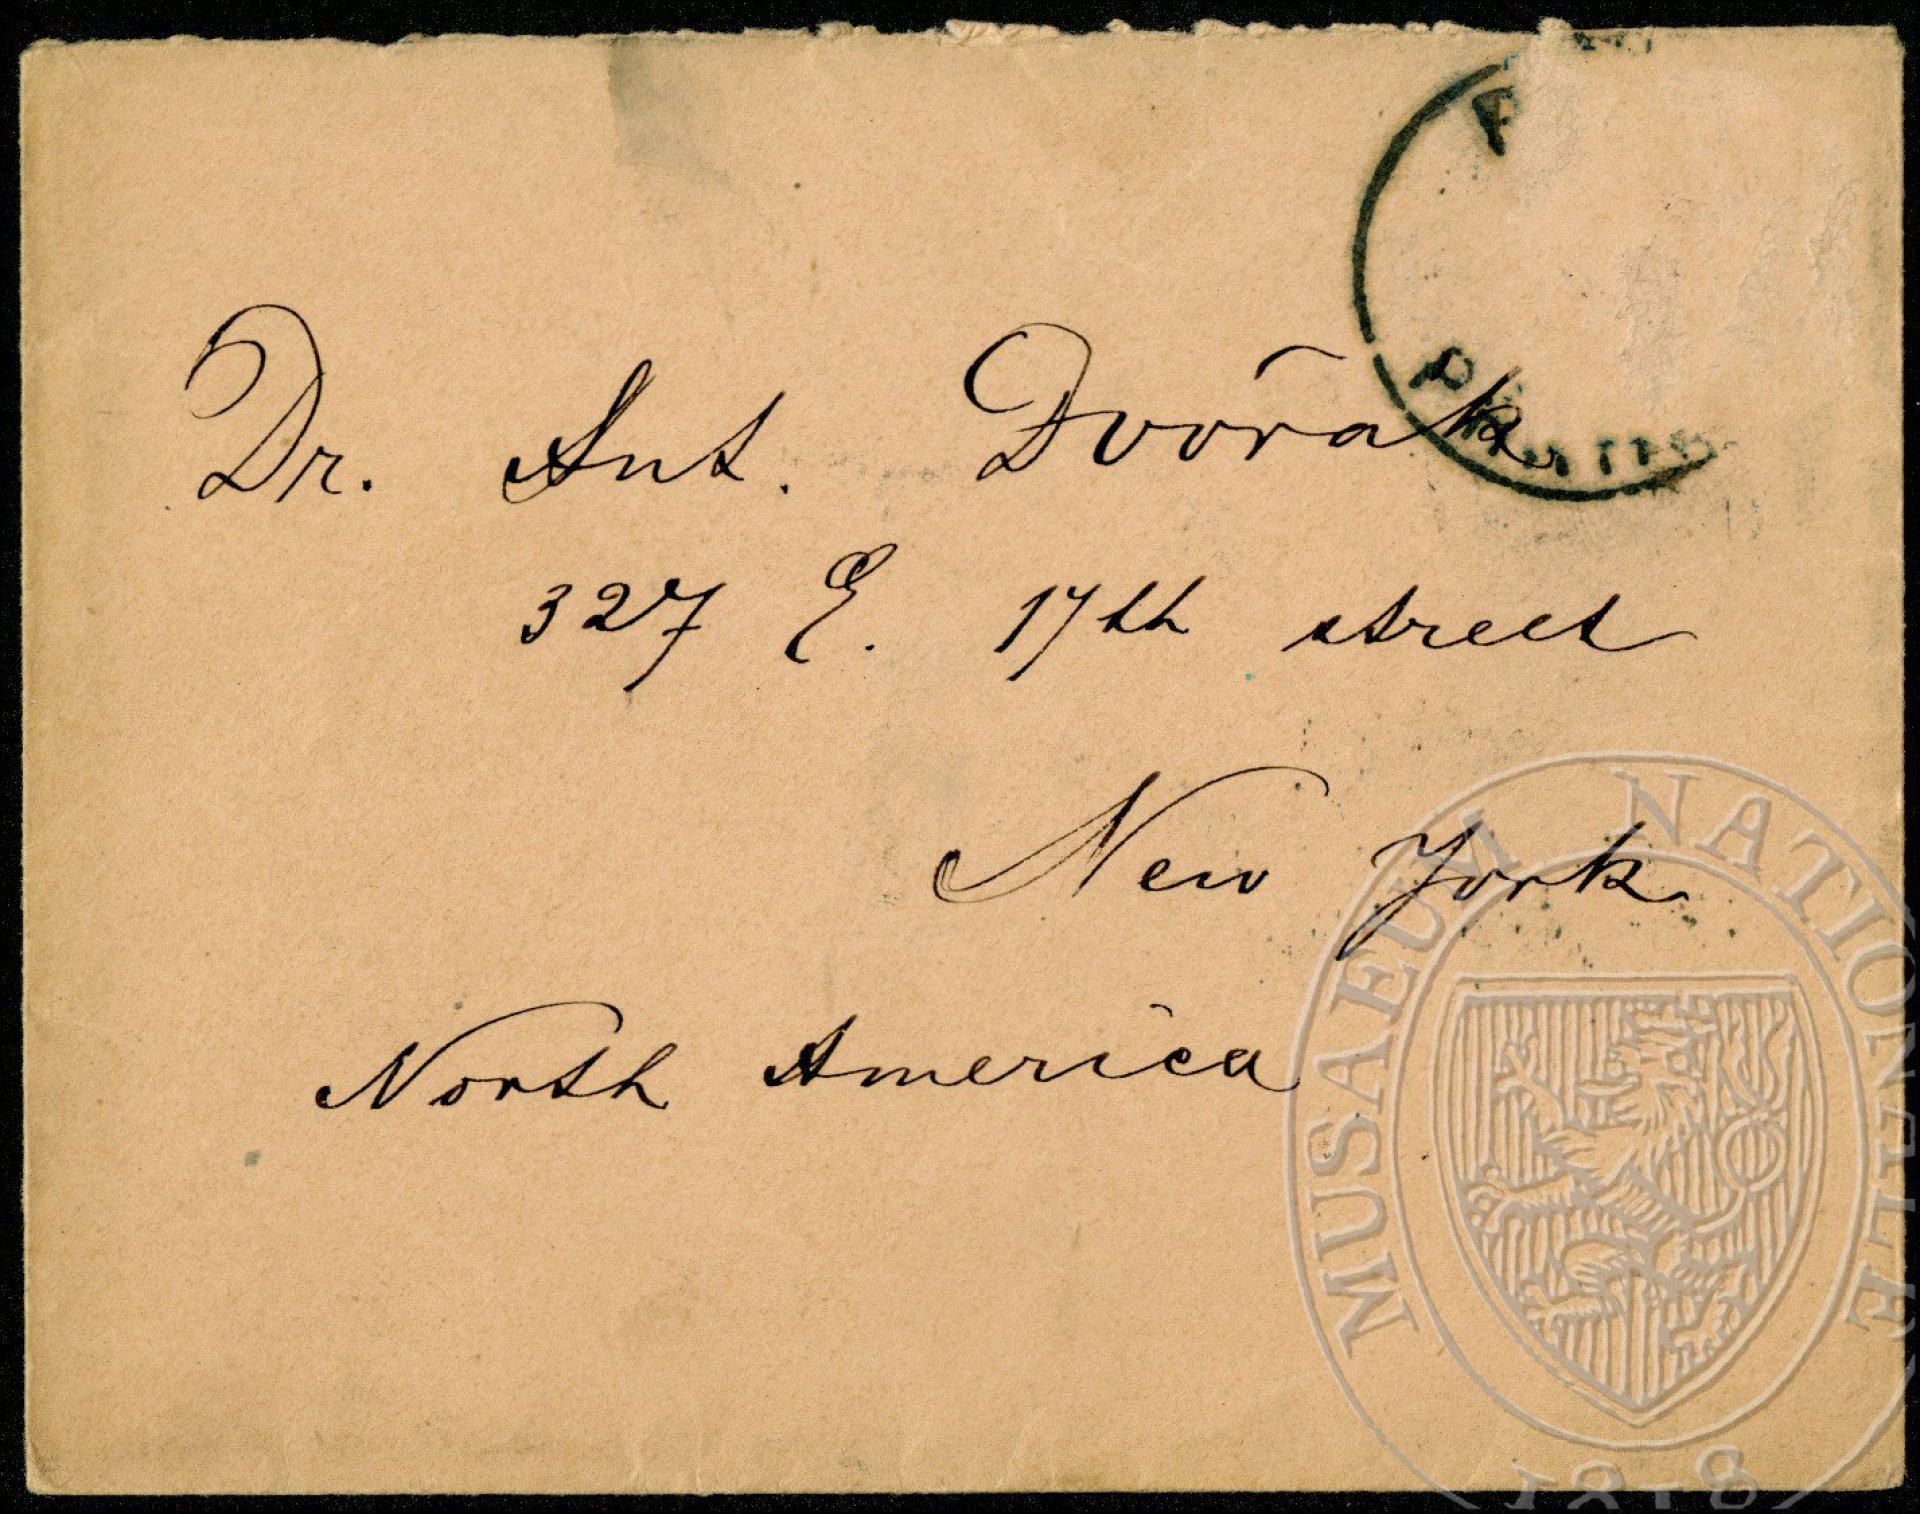 Dr. Ant. Dvořak
327 E. 17th street
New York
North America
MUSAEUM NATIONALE
1818